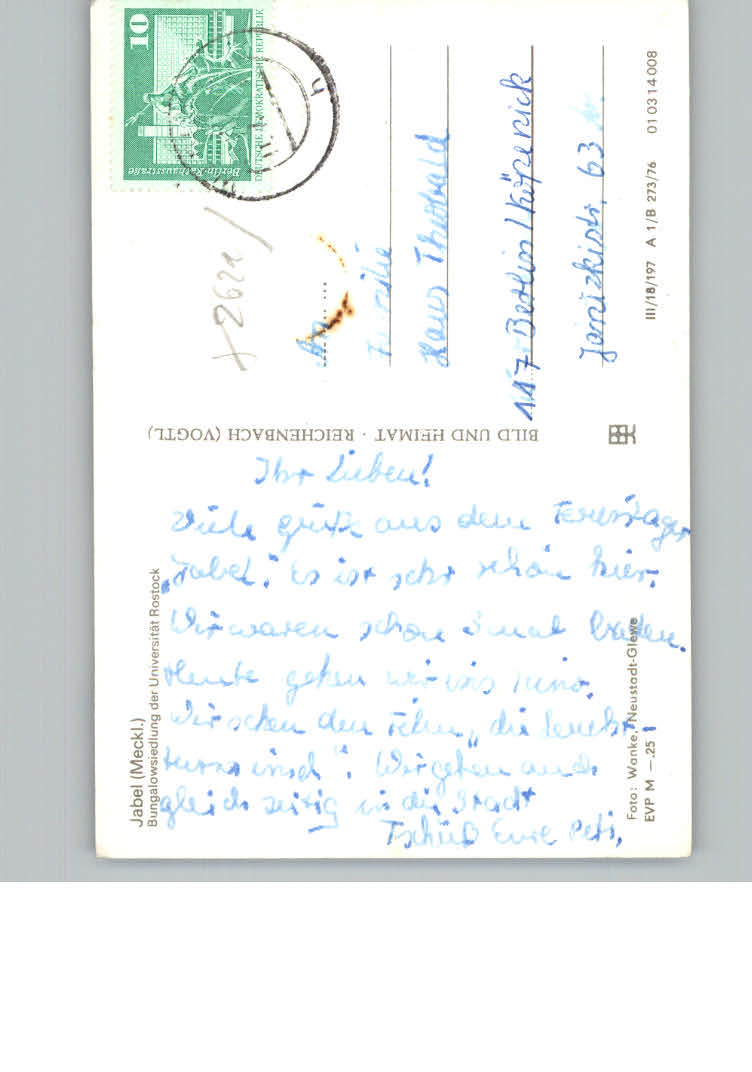 Jabel (Meckl.)
Bungalowsiedlung der Universität Rostock
Ihr Lieben!
Viele grüße aus dem Ferienlager
„Jabel“. Es ist sehr schön hier.
Wir waren schon 3 mal baden.
Heute gehen wir ins Kino.
Wir sehen den Film „die Leucht-
turminsel“. Wir gehen auch
gleichzeitig in die Stadt
Tschüß Eure Peti,
Foto: Wanke, Neustadt-Glewe
EVP M —.25
BILD UND HEIMAT · REICHENBACH (VOGTL)
10
Berlin-Rathausstraße
DEUTSCHE DEMOKRATISCHE REPUBLIK
h
An
Familie
Hans Theobald
117 Berlin/Köpenick
63
III/18/197 A 1/B 273/76 01 03 14 008